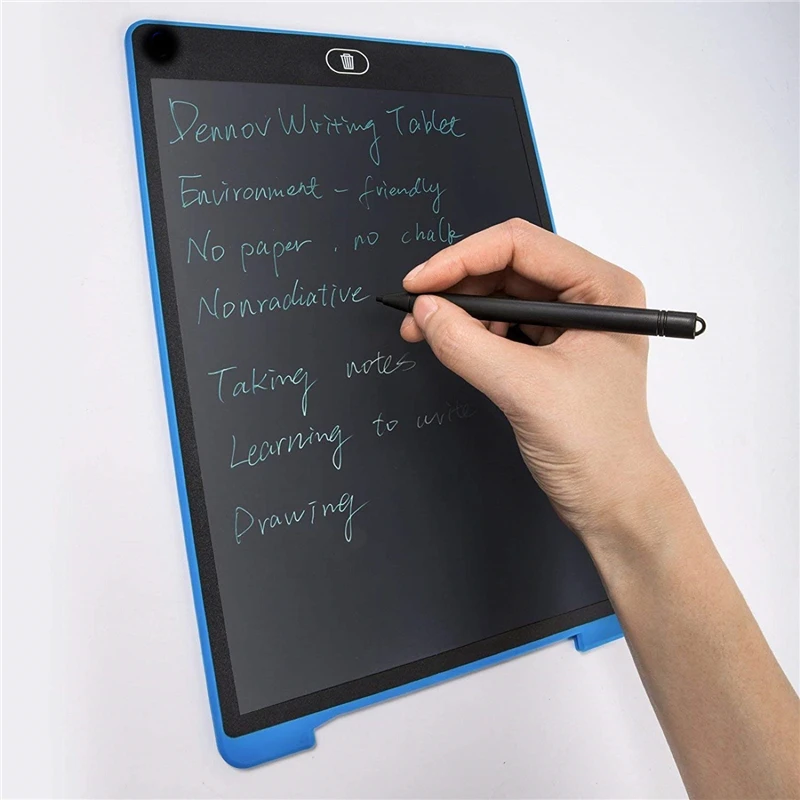 Dennov Writing Tablet
Environment - friendly
No paper, no chalk
Nonradiative
Taking notes
Learning to write
Drawing